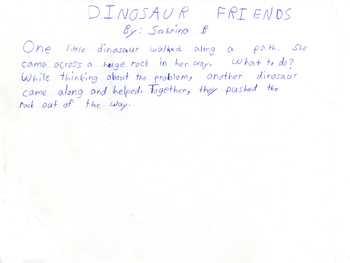 DINOSAUR FRIENDS
By: Sabrina B
One little dinosaur walked along a path. She
came across a huge rock in her way. What to do?
While thinking about the problem, another dinosaur
came along and helped. Together, they pushed the
rock out of the way.